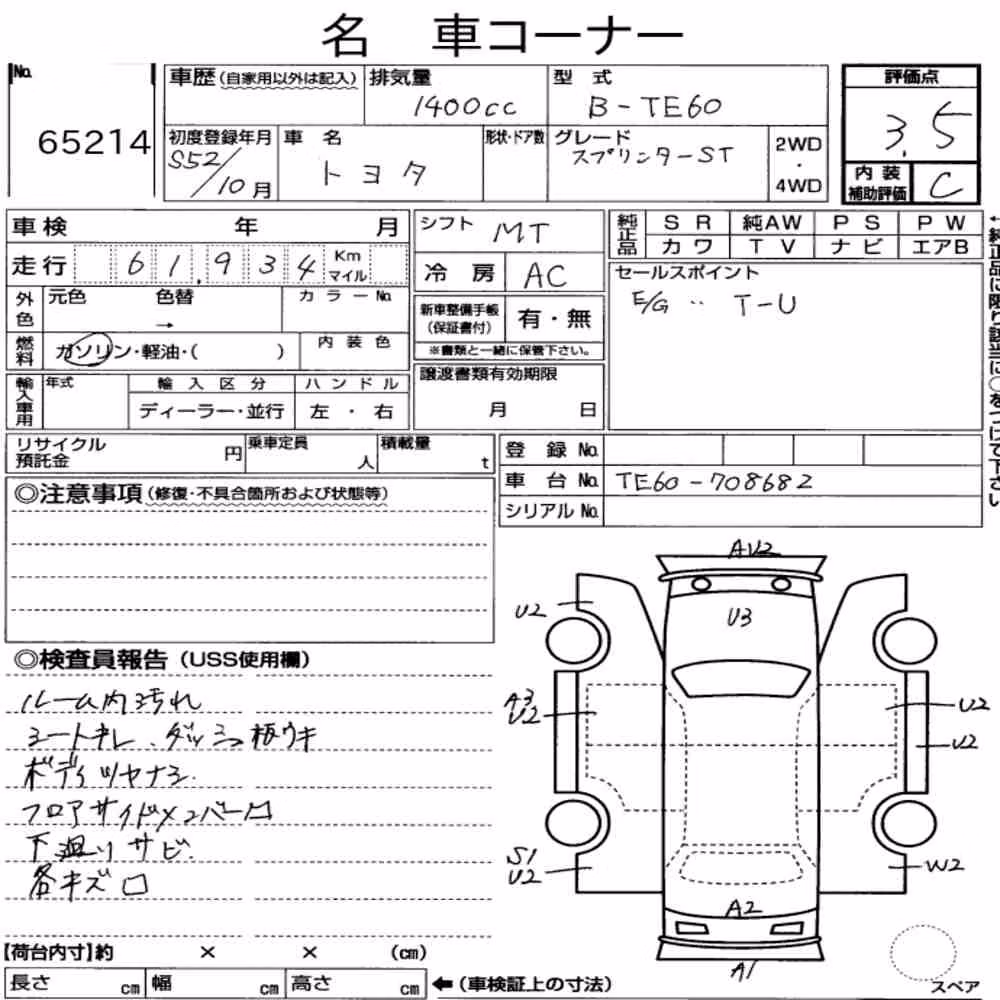 名 車コーナー
No.
65214
車歴(自家用以外は記入)
排気量
1400cc
型 式
B-TE60
評価点
3.5
初度登録年月
S52/10月
車 名
トヨタ
形状・ドア数
グレード
スプリンターST
2WD
・
4WD
内装
補助評価
C
車検 年 月
シフト
MT
純正品
SR 純AW PS PW
カワ TV ナビ エアB
走行
61,934
Km
マイル
冷房
AC
セールスポイント
E/G 〃 T-U
外色
元色 色替
→
カラーNo.
新車整備手帳
(保証書付)
有・無
※書類と一緒に保管下さい。
燃料
ガソリン・軽油・( )
内装色
輸入車用
年式
輸入区分
ディーラー・並行
ハンドル
左・右
譲渡書類有効期限
月 日
←純正品に限り該当に○をつけて下さい
リサイクル
預託金
円
乗車定員
人
積載量
t
登録No.
車台No.
TE60-708682
シリアルNo.
◎注意事項(修復・不具合箇所および状態等)
◎検査員報告(USS使用欄)
ルーム内汚れ
シートキレ、ダッシュ板ウキ
ボディツヤナシ
フロアサイドメンバー□
下廻りサビ
各キズ□
AU2
U2
U3
A3
U2
U2
U2
S1
U2
W2
A2
A1
スペア
【荷台内寸】約 × × (cm)
長さ cm 幅 cm 高さ cm ←(車検証上の寸法)